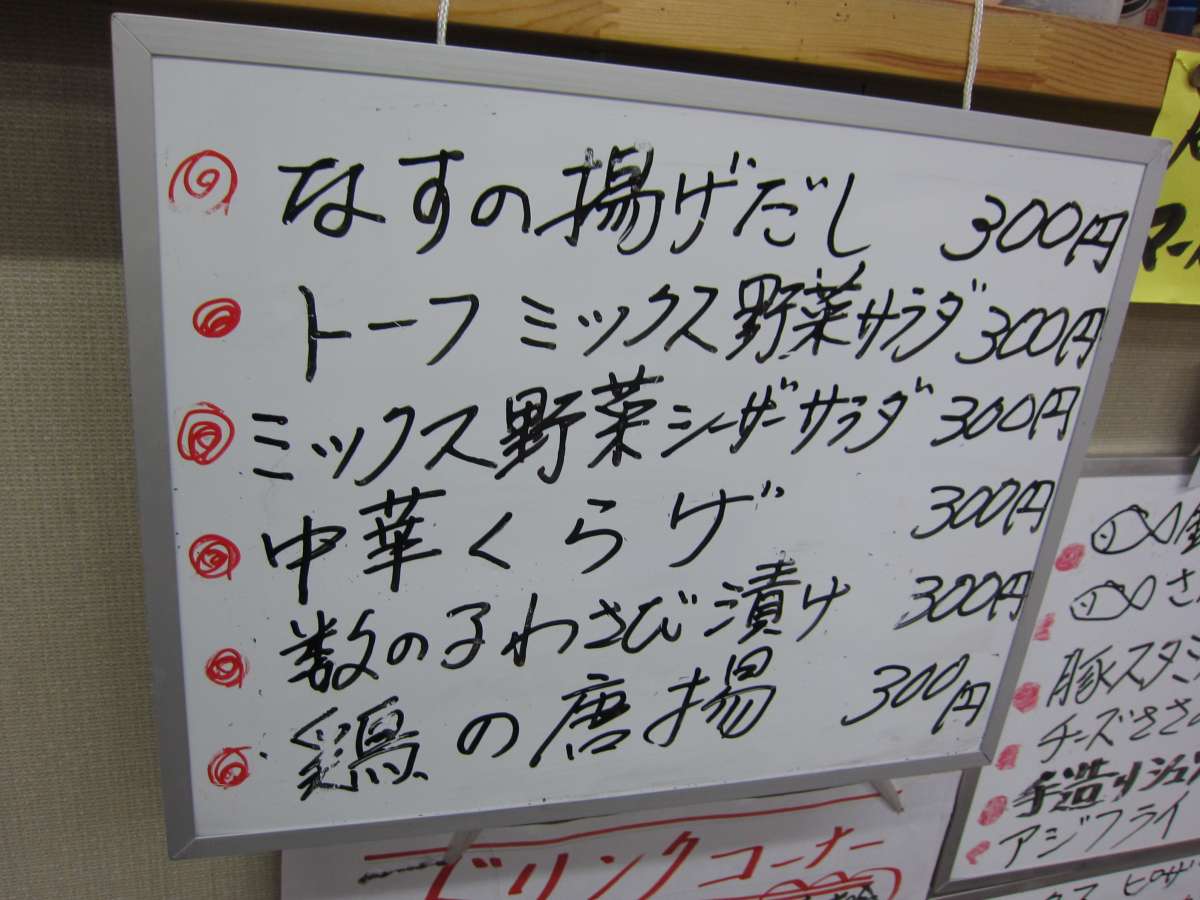 なすの揚げだし 300円
トーフミックス野菜サラダ 300円
ミックス野菜シーザーサラダ 300円
中華くらげ 300円
数の子わさび漬け 300円
鶏の唐揚 300円
豚スタミ
チーズささ
手造り
アジフライ
ドリンクコーナー